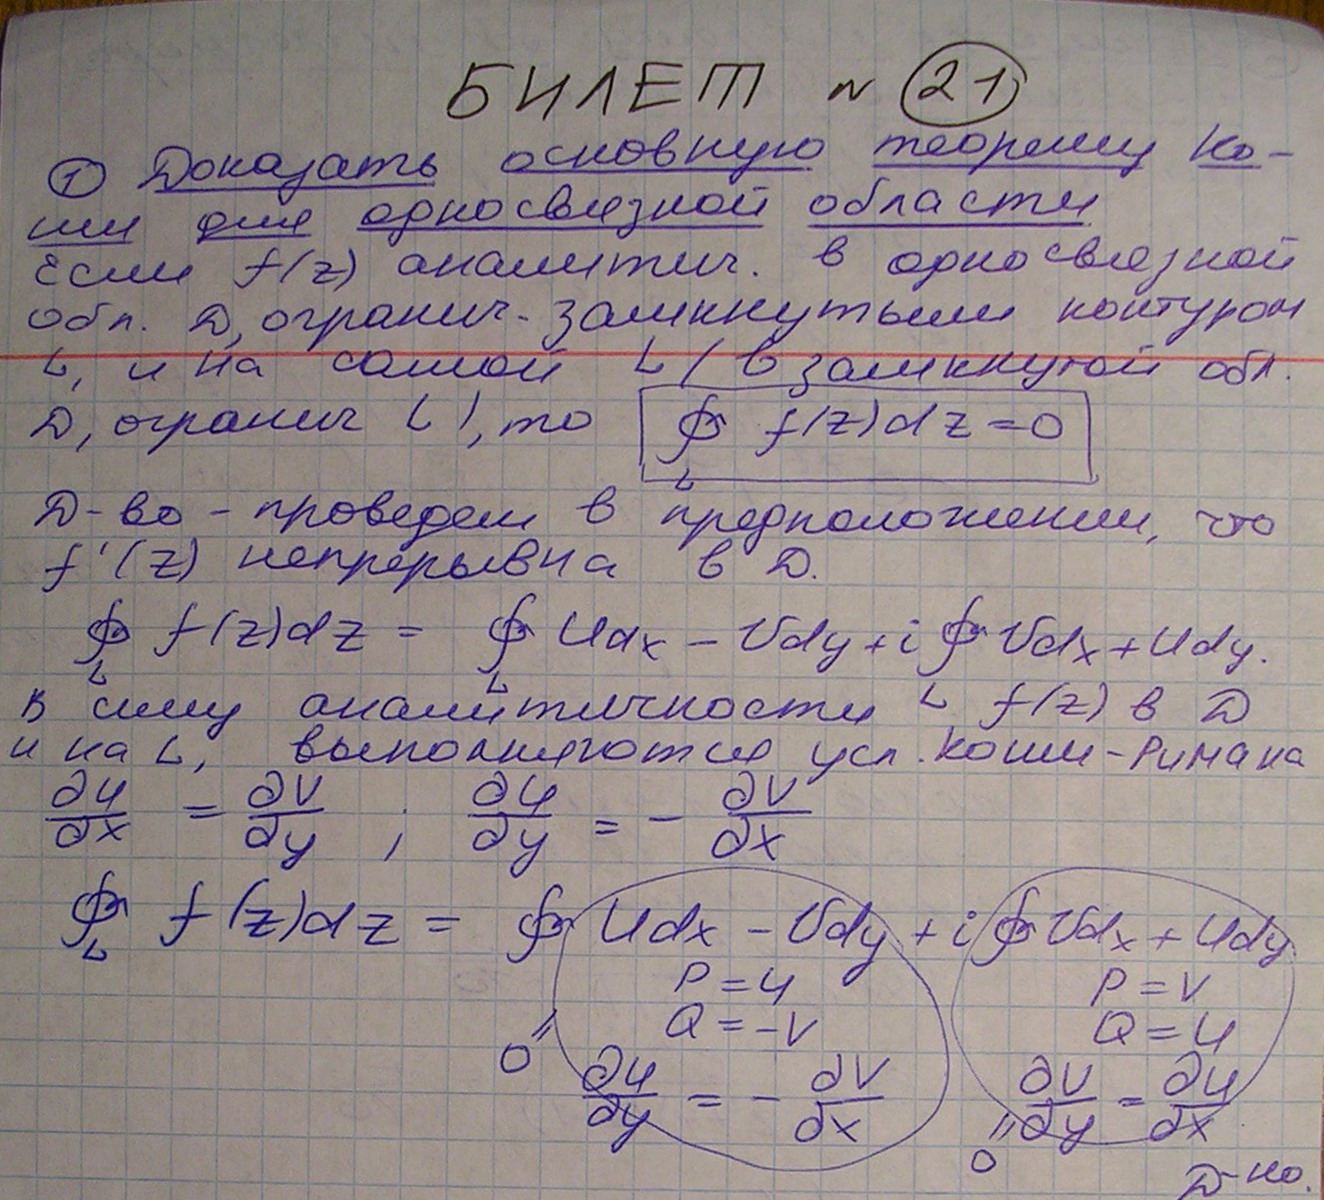 БИЛЕТ № 21
① Доказать основную теорему Ко-
ши для односвязной области
Если f(z) аналитич. в односвязной
обл. D, огранич. замкнутым контуром
L, и на самой L (в замкнутой обл.
D, огранич L), то ∮_L f(z)dz = 0
Д-во - проведем в предположении, что
f'(z) непрерывна в D.
∮_L f(z)dz = ∮_L Udx - Vdy + i∮_L Vdx + Udy.
В силу аналитичности f(z) в D
и на L, выполняются усл. Коши-Римана
∂U/∂x = ∂V/∂y ; ∂U/∂y = - ∂V/∂x
∮_L f(z)dz = ∮ Udx - Vdy + i∮ Vdx + Udy
P = U P = V
Q = -V Q = U
0 = ∂U/∂y = - ∂V/∂x ∂V/∂y = ∂U/∂x
= 0
Д-но.